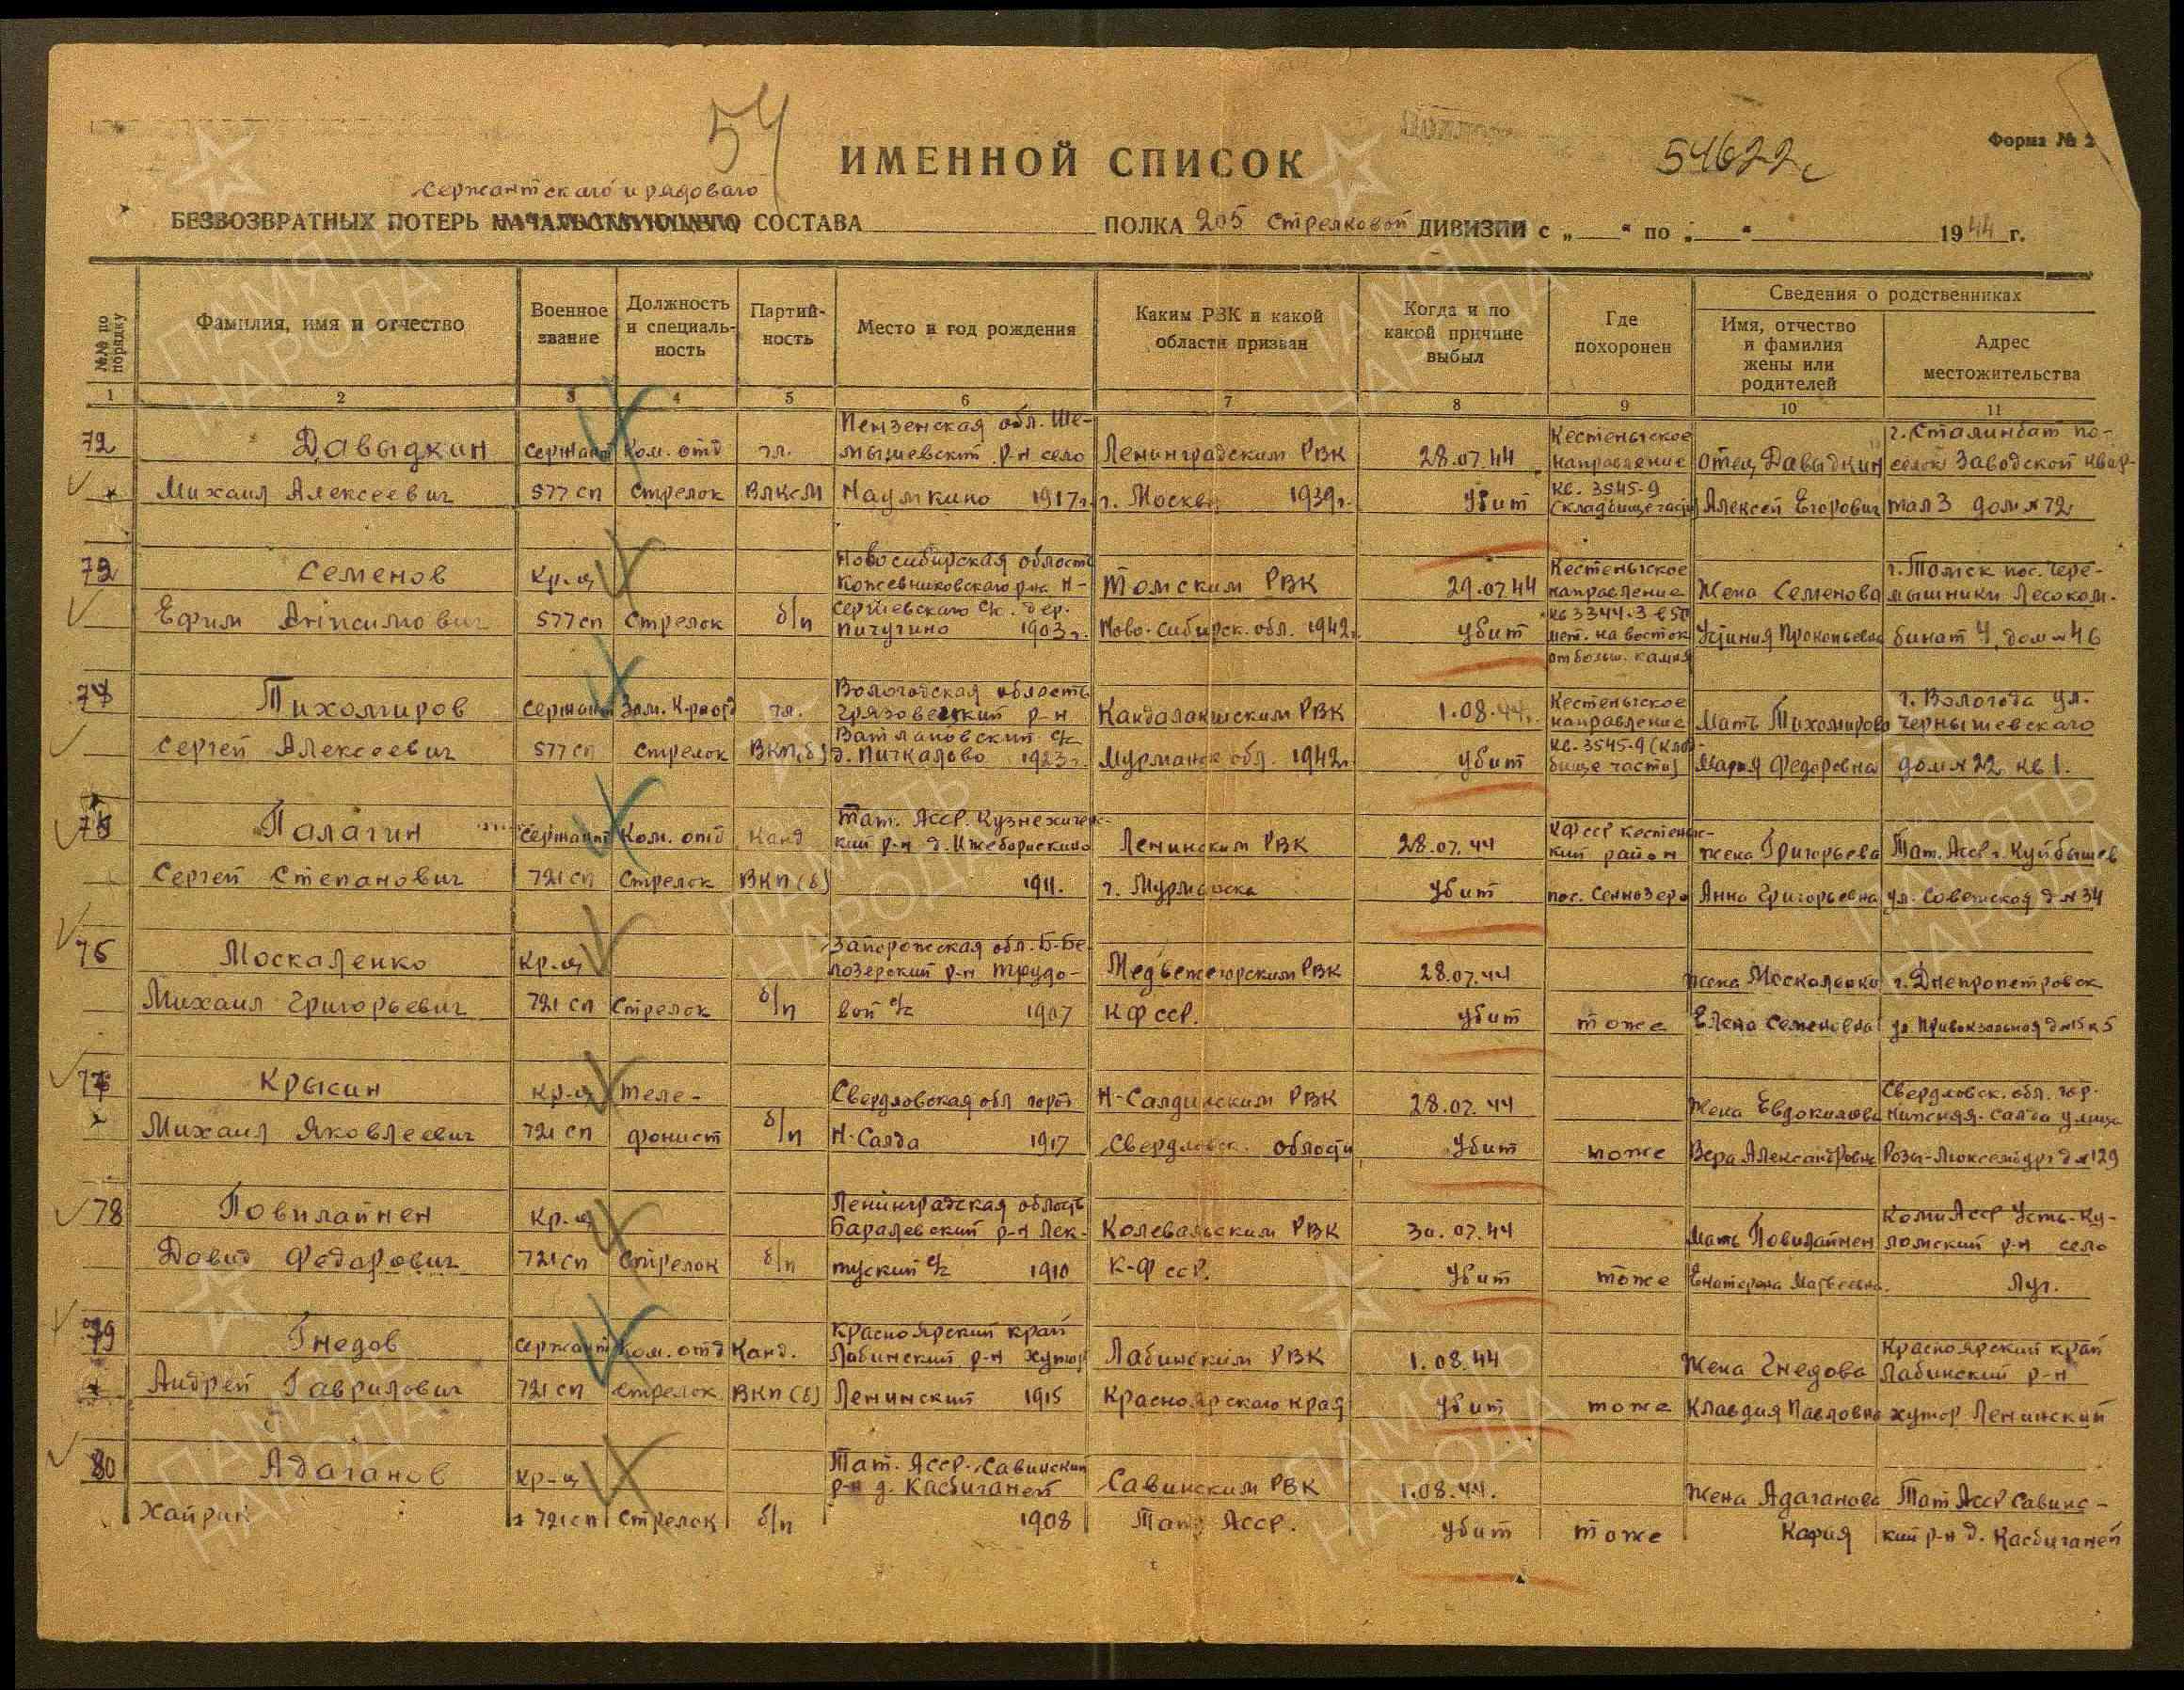 54
ИМЕННОЙ СПИСОК
54622с
Форма № 2
Сержантского и рядового
БЕЗВОЗВРАТНЫХ ПОТЕРЬ НАЧАЛЬСТВУЮЩЕГО СОСТАВА ПОЛКА 205 Стрелковой ДИВИЗИИ с „ “ по „ “ 1944 г.
№№ по порядку
Фамилия, имя и отчество
Военное звание
Должность и специаль-ность
Партий-ность
Место и год рождения
Каким РВК и какой области призван
Когда и по какой причине выбыл
Где похоронен
Сведения о родственниках
Имя, отчество и фамилия жены или родителей
Адрес местожительства
1 2 3 4 5 6 7 8 9 10 11
Пензенская обл. Ше- Кестеньгское
72 Давыдкин сержант Ком. отд чл. мышевский р-н село Ленинградским РВК 28.07.44 направление отец Давыдкин селок Заводской квар-
Михаил Алексеевич 577 сп стрелок ВЛКСМ Наумкино 1917г. г. Москвы 1939г. убит кв. 3545-9 Алексей Егорович тал 3 дом № 72
Новосибирская область Кестеньгское г. Томск пос. Чере-
73 Семенов Кр-ц Кожевниковского р-на Н- Томским РВК 29.07.44 направление Жена Семенова мышники Лесоком-
Ефим 577 сп Стрелок б/п Сергиевского с/с. дер. Пичугино 1903г. Ново-Сибирск. обл. 1942г. убит мет. на восток Устиния Прокопьевна бинат 4, дом № 46
от больш. камня
Вологодская область Кестеньгское г. Вологода ул.
74 Тихомиров Сержант чл. Грязовецкий р-н Кандалакшским РВК 1.08.44г. направление Мать Тихомирова Чернышевского
Сергей Алексеевич 577 сп стрелок ВКП(б) Ватлановский с/с д. Пичкалово 1923г. Мурманск обл. 1942г. убит кв. 3545-9 (клад-бище части) Мария Федоровна дом № 22 кв 1.
Тат. Асср. КФССР кестеньг-
75 Палагин сержант Ком. отд Канд кий р-н д. Ленинским РВК 28.07.44 кий район жена Григорьева Тат. Асср г. Куйбышев
Сергей Степанович 721 сп Стрелок ВКП(б) 1911. г. Мурманска убит пос. Сеннозеро Анна Григорьевна ул. Советская д № 34
Запорожская обл. Б-Бе-
76 Москаленко Кр-ц лозерский р-н Трудо- Медвежегорским РВК 28.07.44 жена Москаленко г. Днепропетровск
Михаил Григорьевич 721 сп Стрелок б/п вой с/с 1907 КФССР. убит тоже Елена Семеновна ул. Привокзальная д № 15 к 5
Свердловск. обл. гор.
77 Крысин Кр-ц теле- Свердловская обл город Н-Салдинским РВК 28.07.44 Жена Евдокимова Нижняя-Салда улица
Михаил Яковлевич 721 сп фонист б/п Н-Салда 1917 Свердловск. области убит тоже Вера Александровна Розы-Люксембург д № 129
Ленинградская область Коми Асср Усть-Ку-
78 Повилайнен Кр-ц р-н Лек- РВК 30.07.44 Мать Повилайнен ломский р-н село
Давид Федорович 721 сп Стрелок б/п туский с/с 1910 К-Ф сср. убит тоже Екатерина Матвеевна
Красноярский край Красноярский край
79 Гнедов Сержант Ком. отд Канд. Лабинский р-н хутор Лабинским РВК 1.08.44 Жена Гнедова Лабинский р-н
Андрей Гаврилович 721 сп стрелок ВКП(б) Ленинский 1915 Красноярского края убит тоже Клавдия Павловна хутор Ленинский
Тат. Асср. Савинский
80 Адаганов Кр-ц р-н д. Касбиганей Савинским РВК 1.08.44. Жена Адаганова Тат Асср Савинс-
721 сп Стрелок б/п 1908 Тат. Асср. убит тоже кий р-н д. Касбиганей
ПАМЯТЬ НАРОДА
ПАМЯТЬ НАРОДА
ПАМЯТЬ НАРОДА
ПАМЯТЬ НАРОДА
ПАМЯТЬ НАРОДА
ПАМЯТЬ НАРОДА